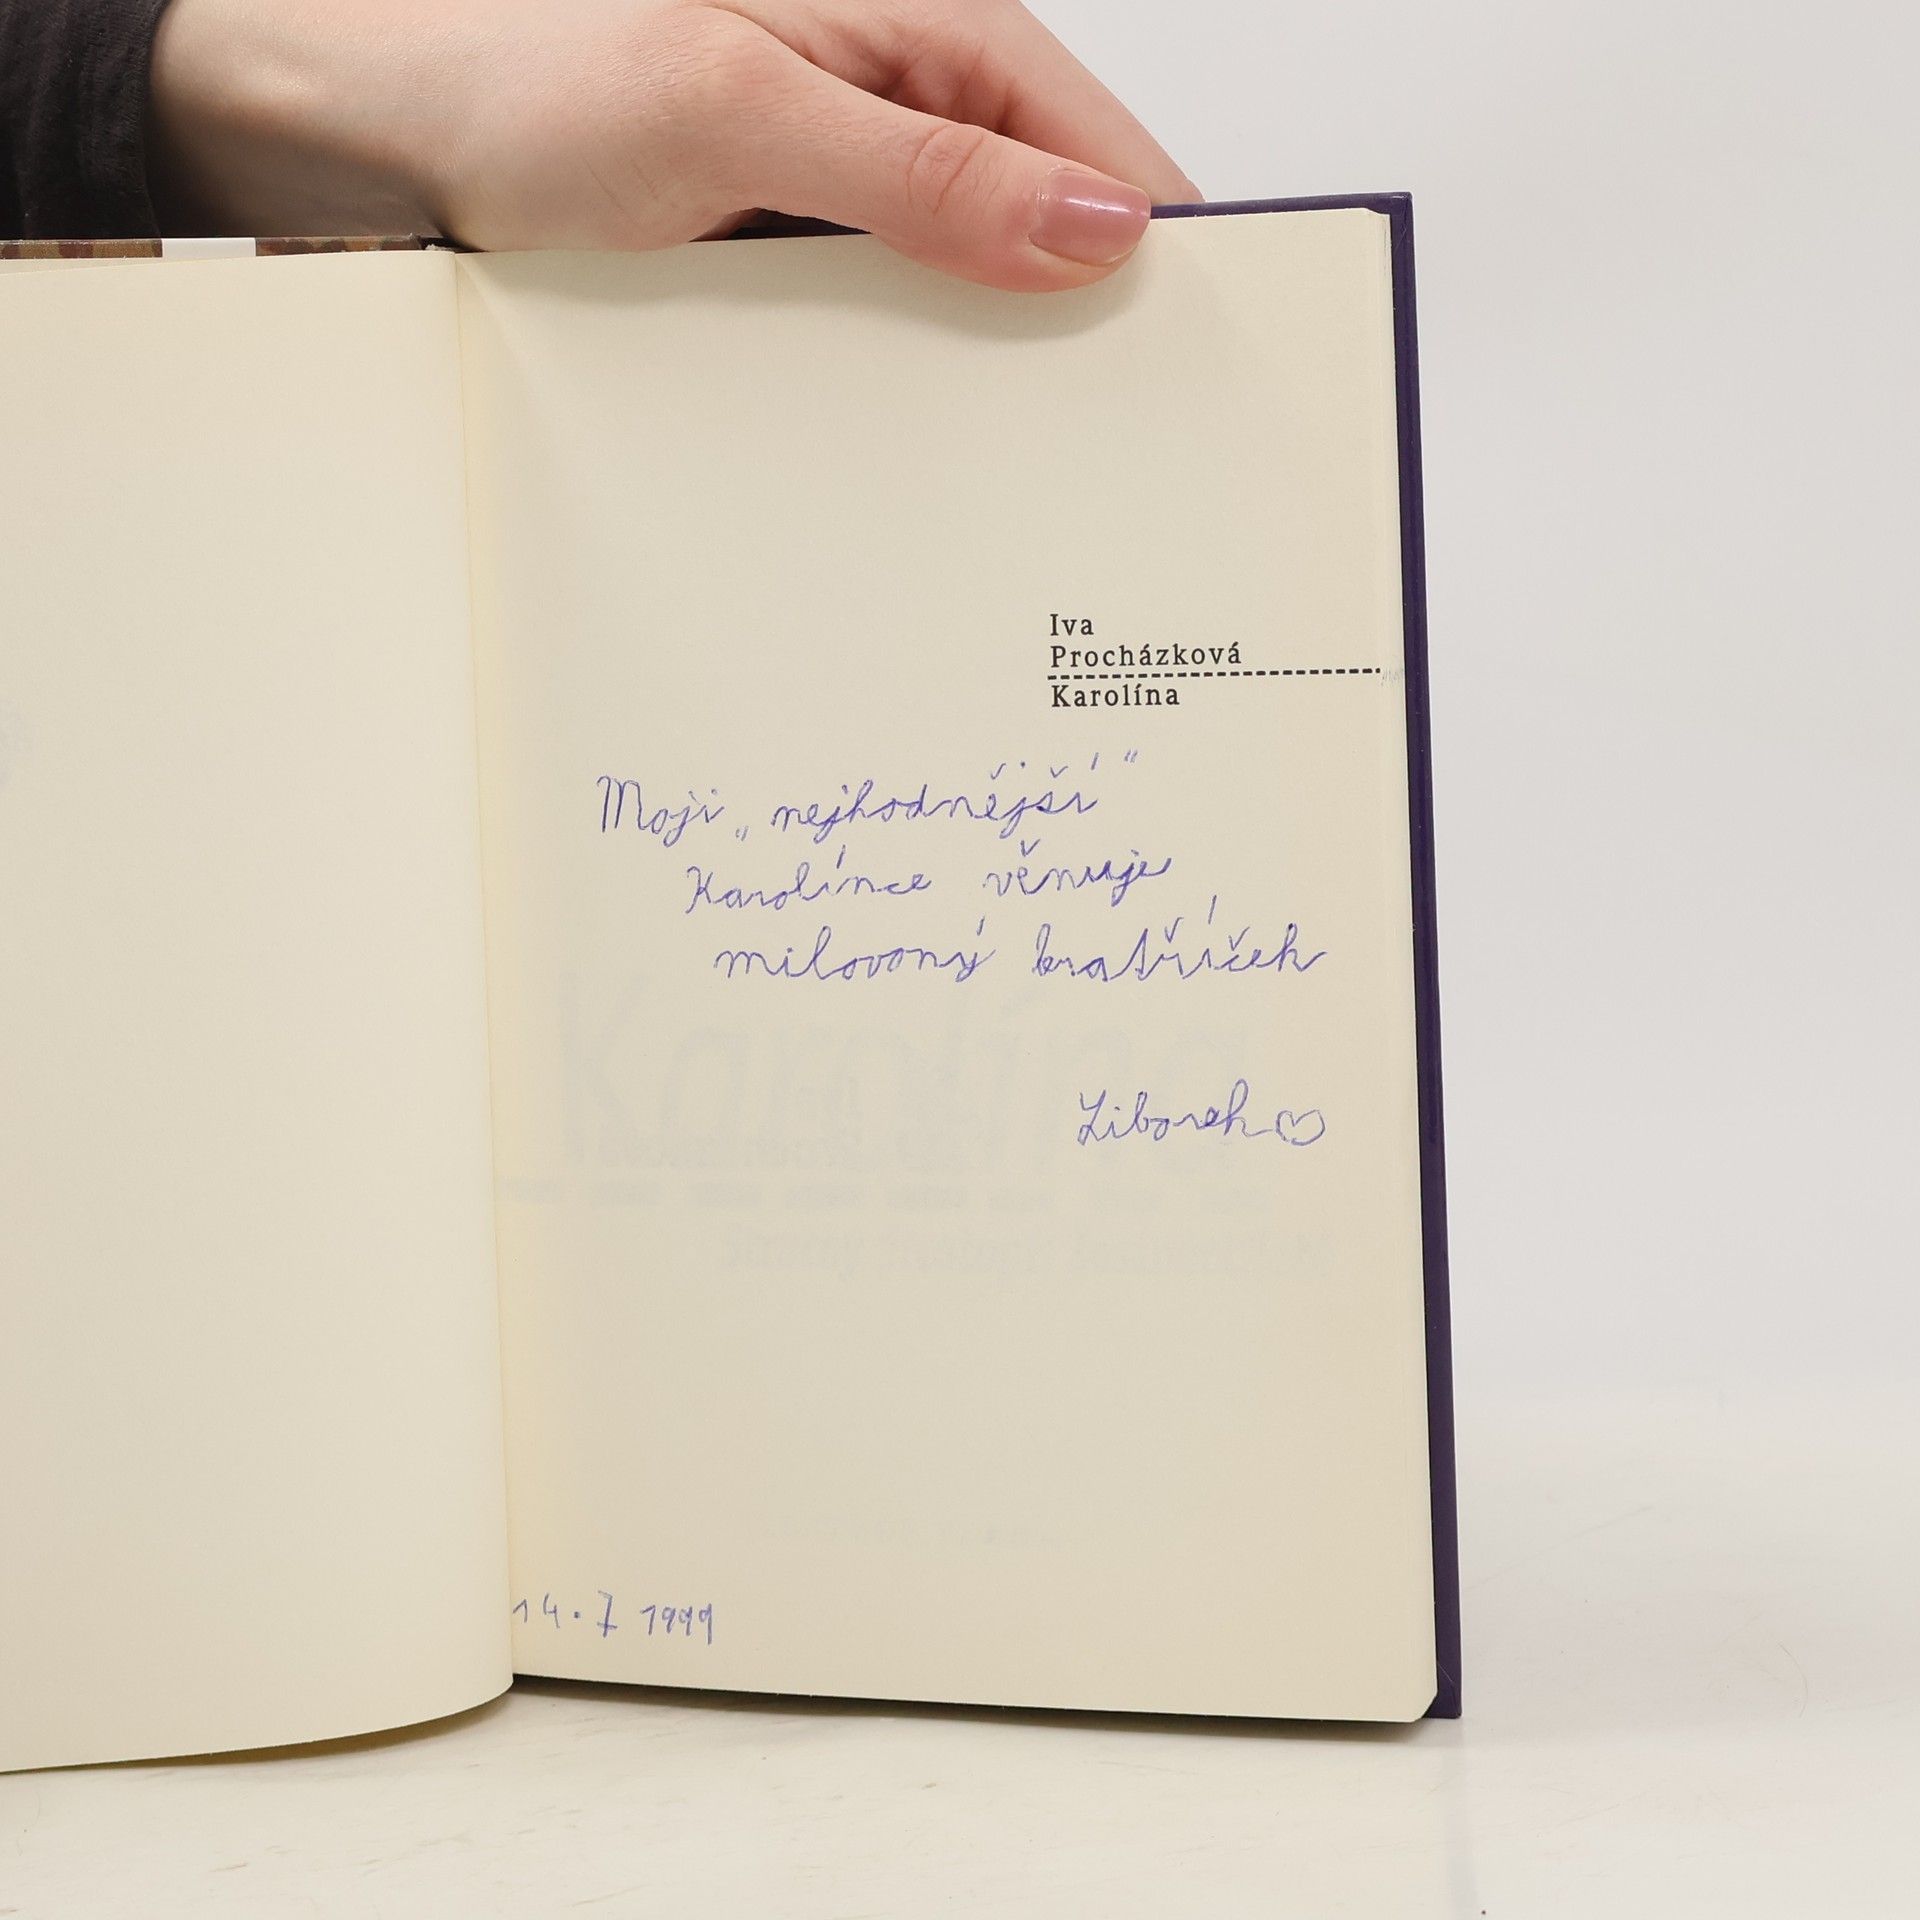 Iva
Procházková
Karolína
Moji „nejhodnější“
Karolínce věnuje
milovoný bratříček
Liborek
14.7 1999